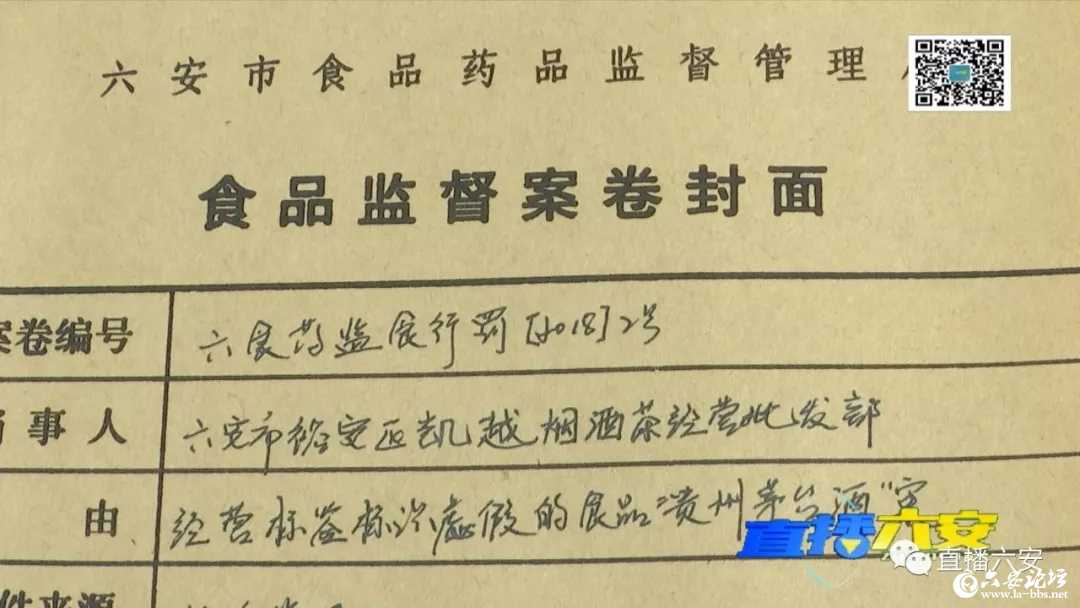 六安市食品药品监督管理
食品监督案卷封面
案卷编号 六食药监食行罚[2018]2号
当事人 六安市裕安区凯越烟酒茶经营批发部
由 经营标签标识虚假的食品“贵州茅台酒”案
件来源
直播六安
直播六安
六安论坛
www.la-bbs.net